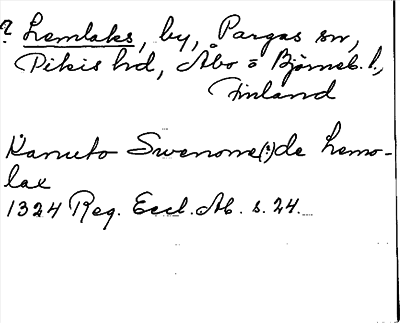 ? Lemlaks, by, Pargas sn,
Pikis hd, Åbo o Björneb. l.,
Finland
Kanuto Swenone(?) de Lemo-
lax
1324 Reg. Eccl. Ab. s. 24.